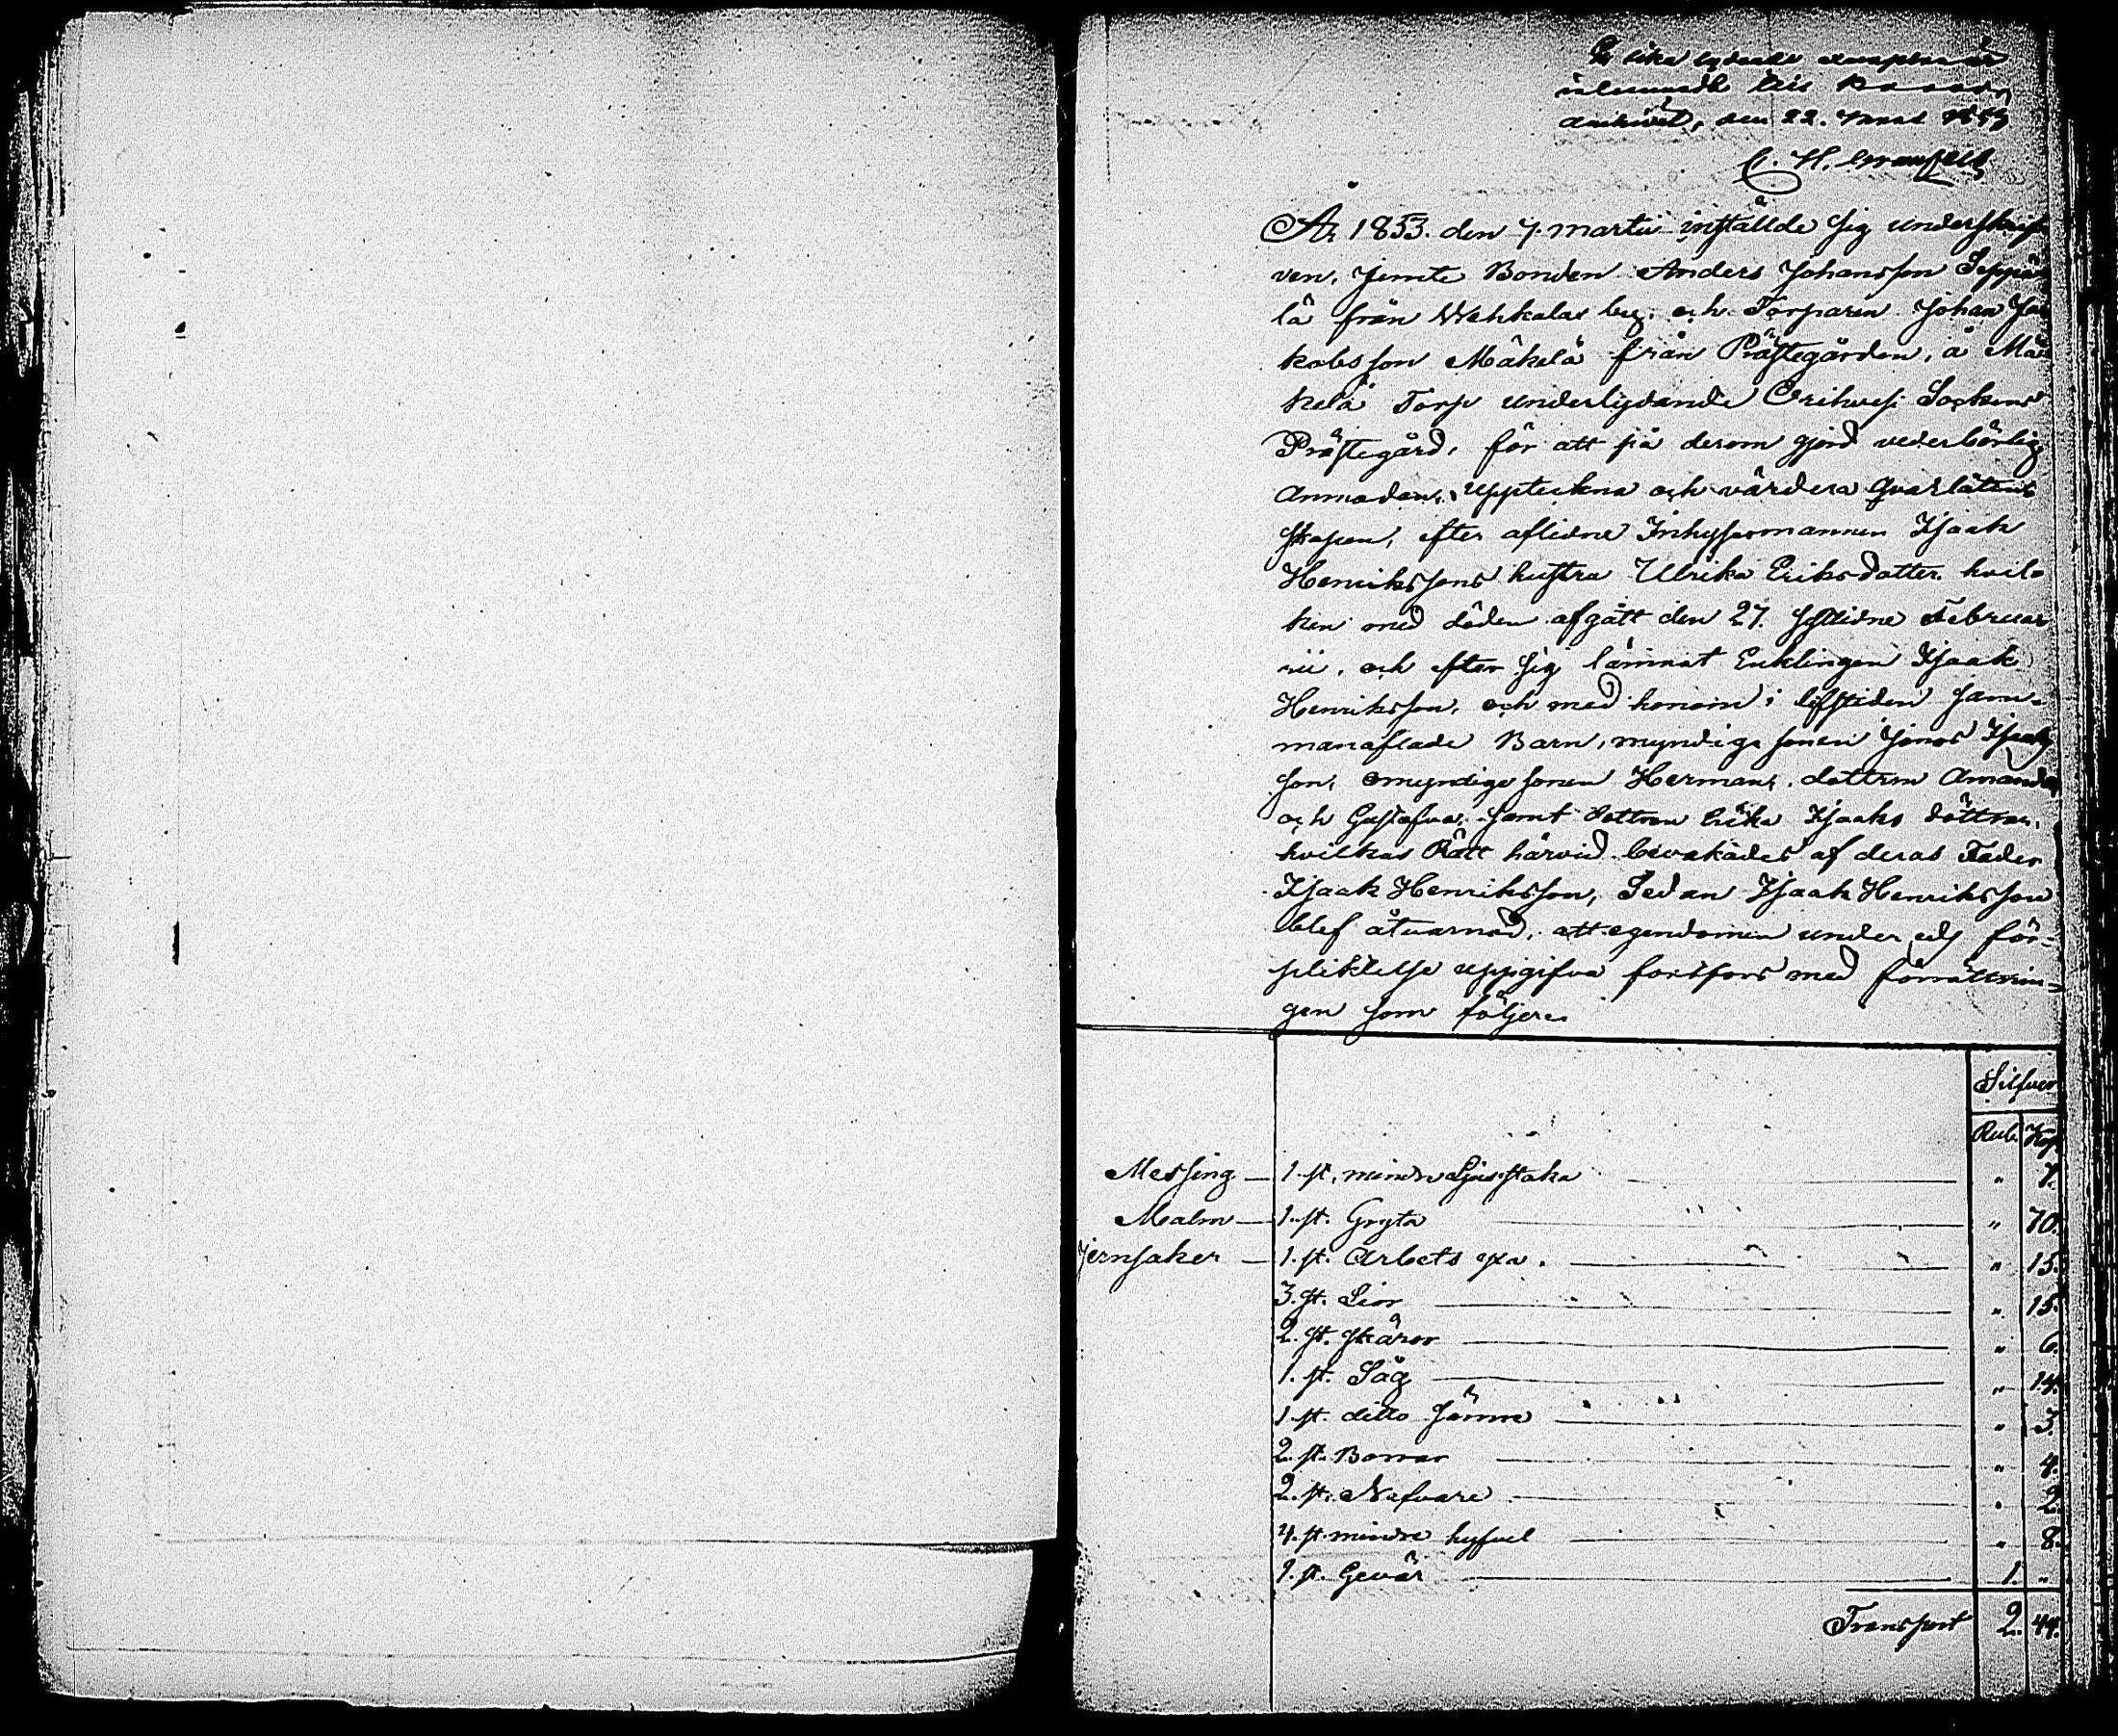 lika lydande exemplar är
inlemnadt till
archivet, den 22. 1853
C. H. Granfelt
År 1853. den 7. Martii inställde sig underskrif
ven, jemte Bonden Anders Johansson Seppä
lä från Wehkalax by, och Torparen Johan Ja
kobsson Mäkelä från Prästegården, å Mä
kelä Torp underlydande Orihvesi Sockens
Prästegård, för att på derom gjord vederbörlig
anmodan, uppteckna och värdera Qvarlåtens
skapen, efter aflidne Inhysesmannen Isaak
Henrikssons hustru Ulrika Eriksdotter, hvil-
ken med döden afgått den 27. sistlidne Februa
rii, och efter sig lämnat Enklingen Isaak
Henriksson, och med honom i lifstiden sam-
manaflade Barn, myndige sonen Jonas Isaks
son, omyndige sonen Herman, dottren Amanda
och Gustafva, samt dottren Isaaks döttrar,
hvilkas Rätt härvid bevakades af deras Fader
Isaak Henriksson, Sedan Isaak Henriksson
blef åtvarnad, att egendomen under edl för-
pliktelse uppgifva fortfors med förrättnin-
gen som följer
Silfver
Rub. Kop.
Messing — 1. st. mindre Ljusstaka " 7.
Malm — 1. st. Gryta " 70.
Jernsaker — 1. st. Arbets yxa. " 15.
3. st. Lior " 15.
2. st. skäror " 6.
1. st. Såg " 14.
1. st. ditto sämre " 3.
2. st. Borrar " 4.
2. st. Nafvare " 2.
4. st. mindre hyfvel " 8.
1. st. Gevär 1. "
Transport 2. 44.